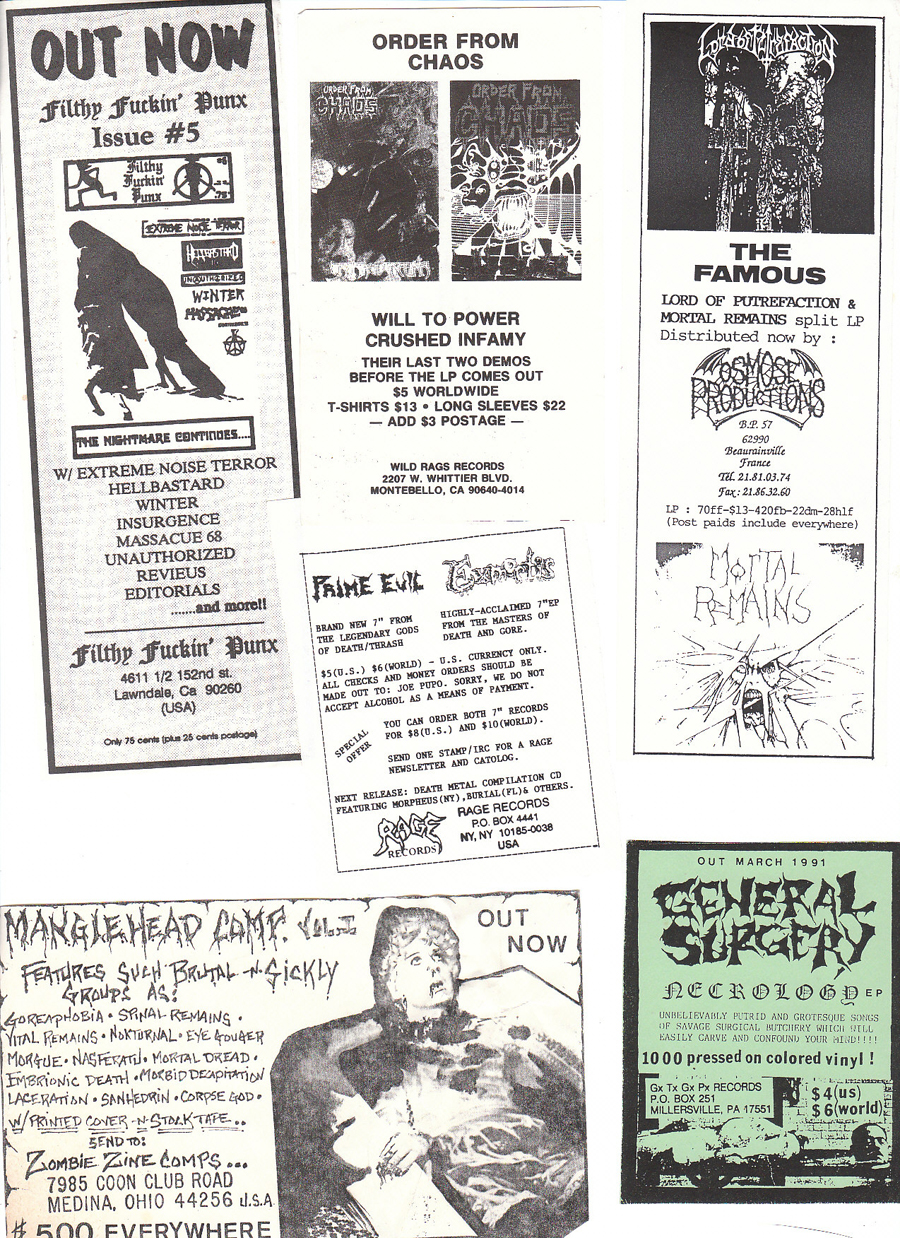 OUT NOW
Filthy Fuckin' Punx
Issue #5
Filthy
Fuckin'
Punx
EXTREME NOISE TERROR
HELLBASTARD
UNAUTHORIZED
WINTER
MASSACRE 68
THE NIGHTMARE CONTINUES....
W/ EXTREME NOISE TERROR
HELLBASTARD
WINTER
INSURGENCE
MASSACUE 68
UNAUTHORIZED
REVIEUS
EDITORIALS
.......and more!!
Filthy Fuckin' Punx
4611 1/2 152nd st.
Lawndale, Ca 90260
(USA)
Only 75 cents (plus 25 cents postage)
ORDER FROM
CHAOS
ORDER FROM
CHAOS
ORDER FROM
CHAOS
WILL TO POWER
CRUSHED INFAMY
THEIR LAST TWO DEMOS
BEFORE THE LP COMES OUT
$5 WORLDWIDE
T-SHIRTS $13 • LONG SLEEVES $22
— ADD $3 POSTAGE —
WILD RAGS RECORDS
2207 W. WHITTIER BLVD.
MONTEBELLO, CA 90640-4014
Lord of Putrefaction
THE
FAMOUS
LORD OF PUTREFACTION &
MORTAL REMAINS split LP
Distributed now by :
OSMOSE
PRODUCTIONS
B.P. 57
62990
Beaurainville
France
Tél. 21.81.03.74
Fax : 21.86.32.60
LP : 70ff-$13-420fb-22dm-28hlf
(Post paids include everywhere)
MORTAL
REMAINS
PRIME EVIL
BRAND NEW 7" FROM
THE LEGENDARY GODS
OF DEATH/THRASH
HIGHLY-ACCLAIMED 7"EP
FROM THE MASTERS OF
DEATH AND GORE.
$5(U.S.) $6(WORLD) - U.S. CURRENCY ONLY.
ALL CHECKS AND MONEY ORDERS SHOULD BE
MADE OUT TO: JOE PUPO. SORRY, WE DO NOT
ACCEPT ALCOHOL AS A MEANS OF PAYMENT.
SPECIAL
OFFER
YOU CAN ORDER BOTH 7" RECORDS
FOR $8(U.S.) AND $10(WORLD).
SEND ONE STAMP/IRC FOR A RAGE
NEWSLETTER AND CATOLOG.
NEXT RELEASE: DEATH METAL COMPILATION CD
FEATURING MORPHEUS(NY),BURIAL(FL)& OTHERS.
RAGE
RECORDS
RAGE RECORDS
P.O. BOX 4441
NY, NY 10185-0038
USA
MANGLEHEAD COMP. Vol. I
OUT
NOW
FEATURES SUCH BRUTAL -N- SICKLY
GROUPS AS:
GOREAPHOBIA • SPINAL REMAINS •
VITAL REMAINS • NOKTURNAL • EYE GOUGER
MORGUE • NASFERATU • MORTAL DREAD •
EMBRIONIC DEATH • MORBID DECAPITATION
LACERATION • SANHEDRIN • CORPSE GOD •
W/ PRINTED COVER -N- STOCK TAPE..
SEND TO:
ZOMBIE ZINE COMPS...
7985 COON CLUB ROAD
MEDINA, OHIO 44256 U.S.A
$500 EVERYWHERE
OUT MARCH 1991
GENERAL
SURGERY
NECROLOGY EP
UNBELIEVABLY PUTRID AND GROTESQUE SONGS
OF SAVAGE SURGICAL BUTCHERY WHICH WILL
EASILY CARVE AND CONFOUND YOUR MIND!!!!
1000 pressed on colored vinyl !
Gx Tx Gx Px RECORDS
P.O. BOX 251
MILLERSVILLE, PA 17551
$4(us)
$6(world)